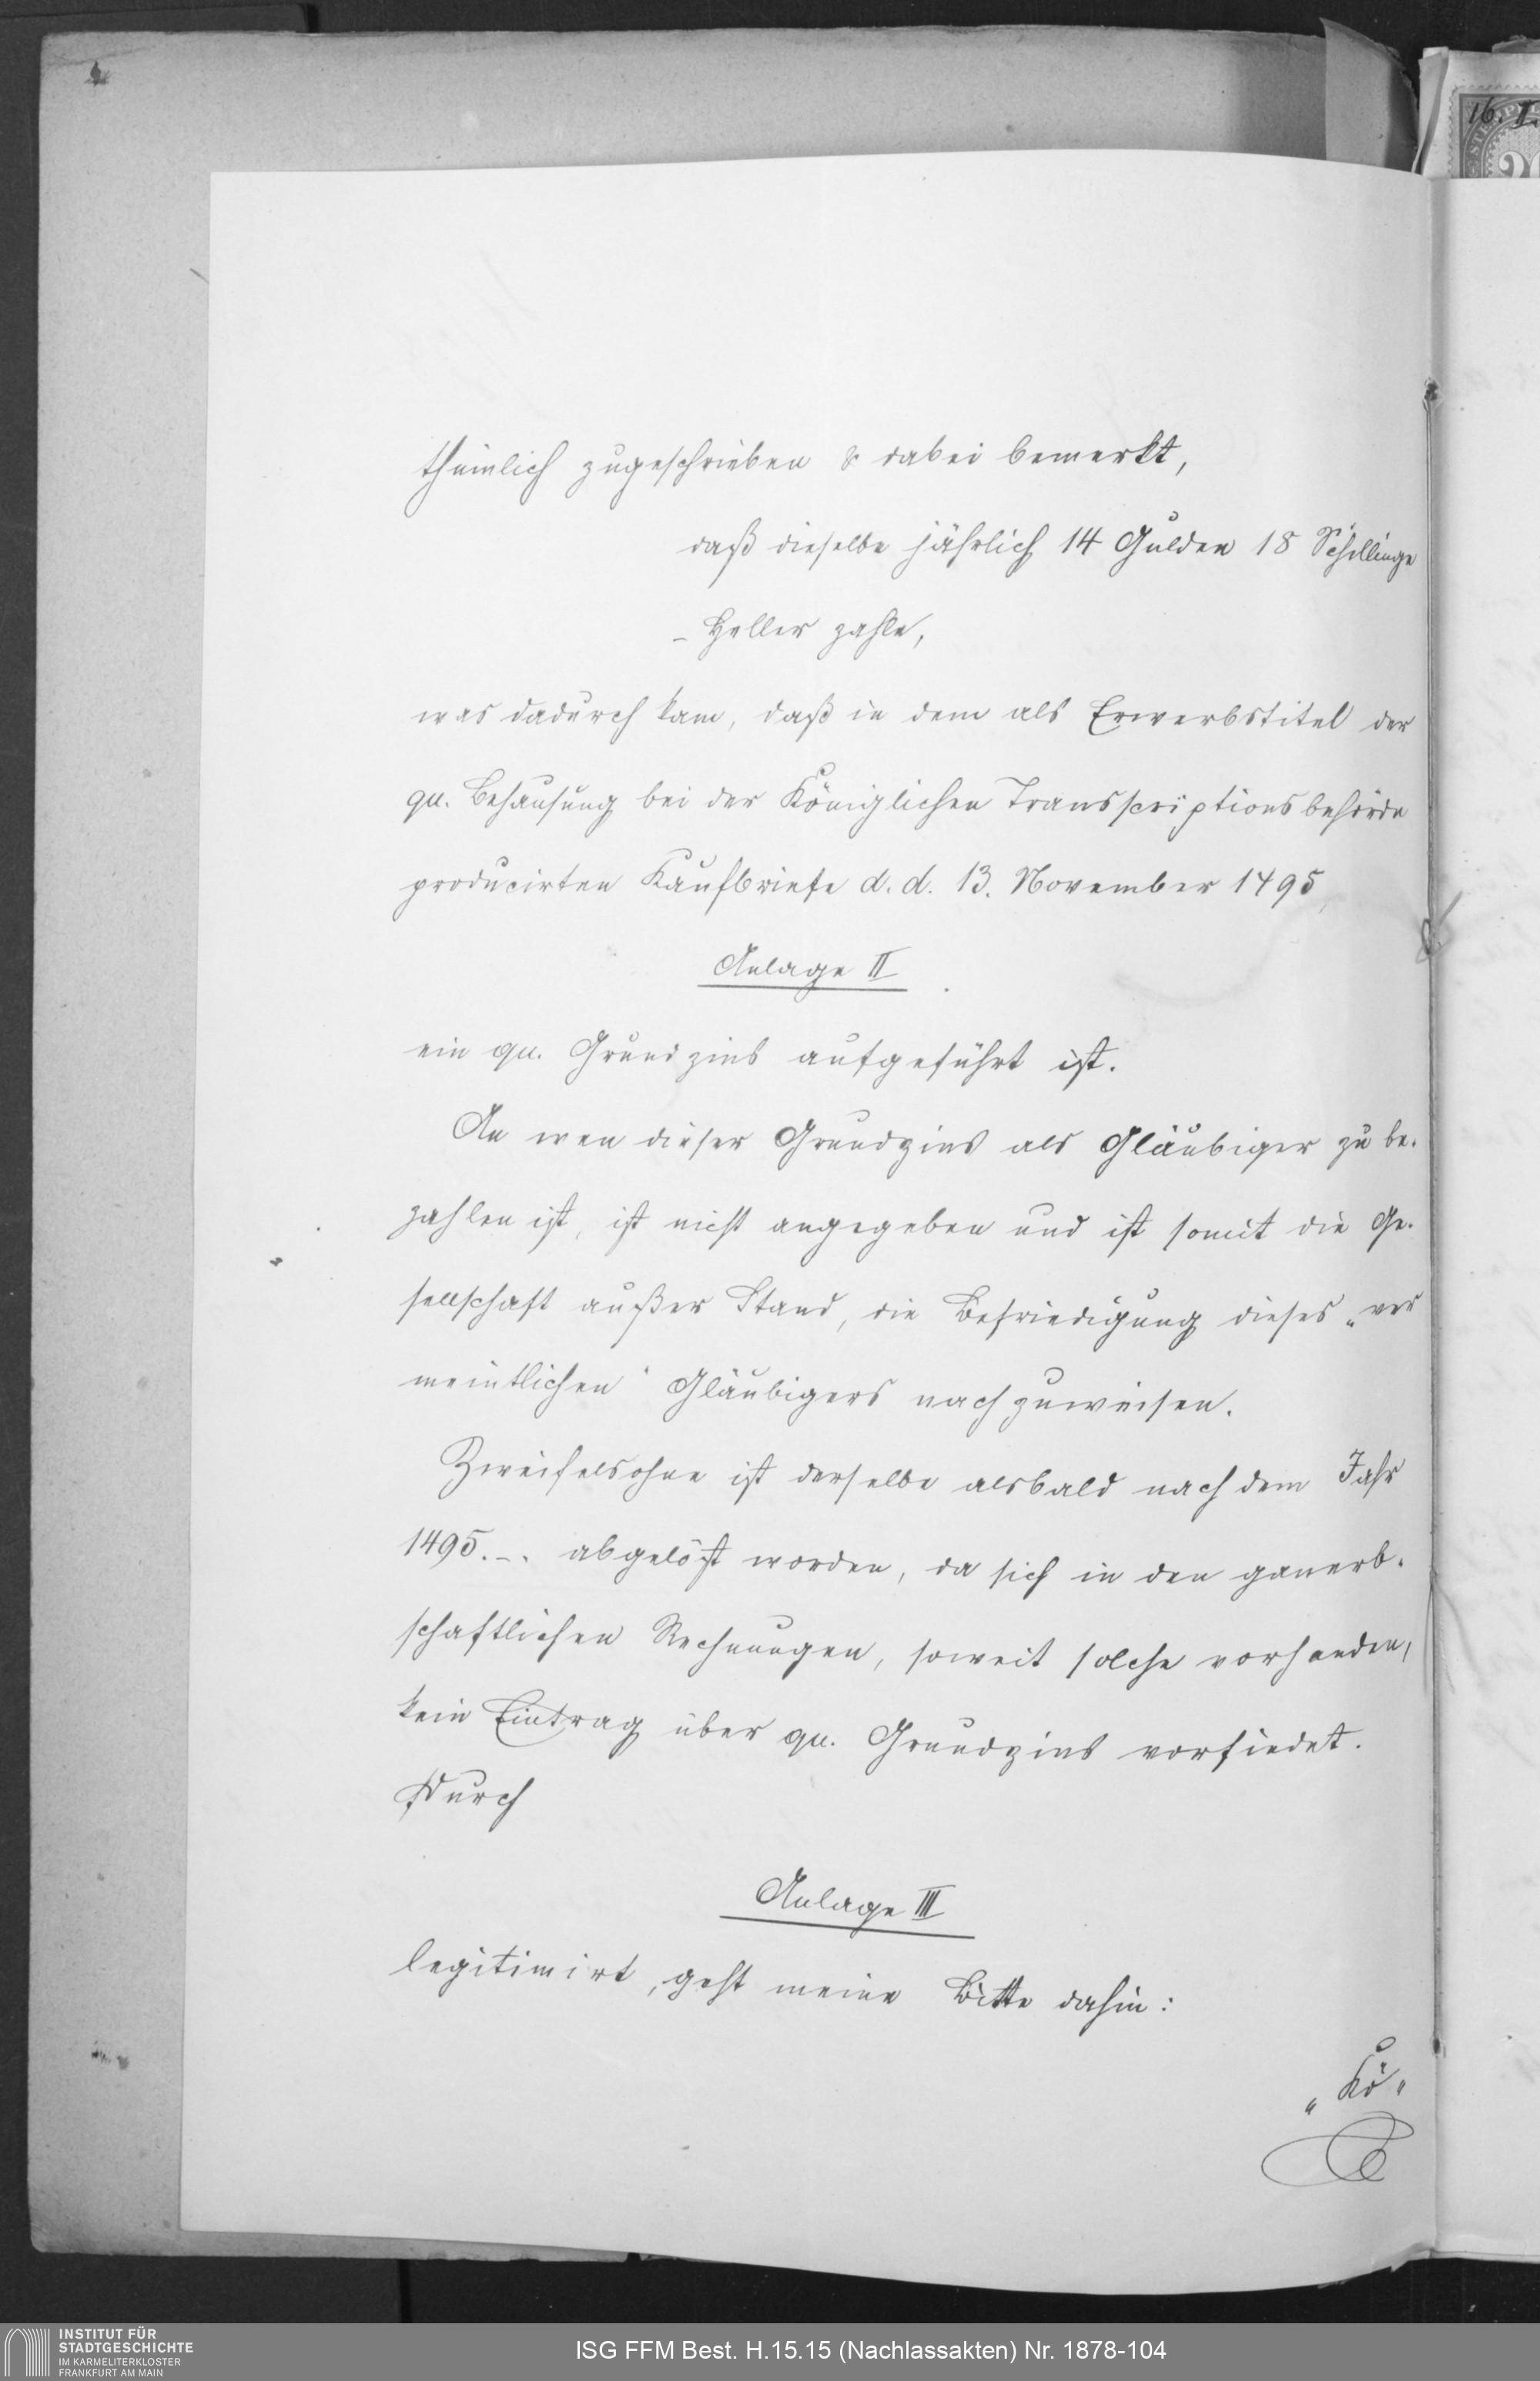 16. II.
thümlich zugeschrieben & dabei bemerkt,
daß dieselbe jährlich 14 Gulden 18 Schillinge
– Heller zahle,
was dadurch kam, daß in dem als Erwerbstitel der
qu. Behausung bei der Königlichen Transscriptionsbehörde
producirten Kaufbriefe d. d. 13. November 1495,
Anlage II
ein qu. Grundzins aufgeführt ist.
An wen dieser Grundzins als Gläubiger zu be-
zahlen ist, ist nicht angegeben und ist somit die Ge-
sellschaft außer Stand, die Befriedigung dieses „ver
meintlichen“ Gläubigers nachzuweisen.
Zweifelsohne ist derselbe alsbald nach dem Jahr
1495.-. abgelöst worden, da sich in den ganerb-
schaftlichen Rechnungen, soweit solche vorhanden,
kein Eintrag über qu. Grundzins vorfindet.
Durch
Anlage III
legitimirt, geht meine Bitte dahin:
„Kö“
INSTITUT FÜR
STADTGESCHICHTE
IM KARMELITERKLOSTER
FRANKFURT AM MAIN
ISG FFM Best. H.15.15 (Nachlassakten) Nr. 1878-104